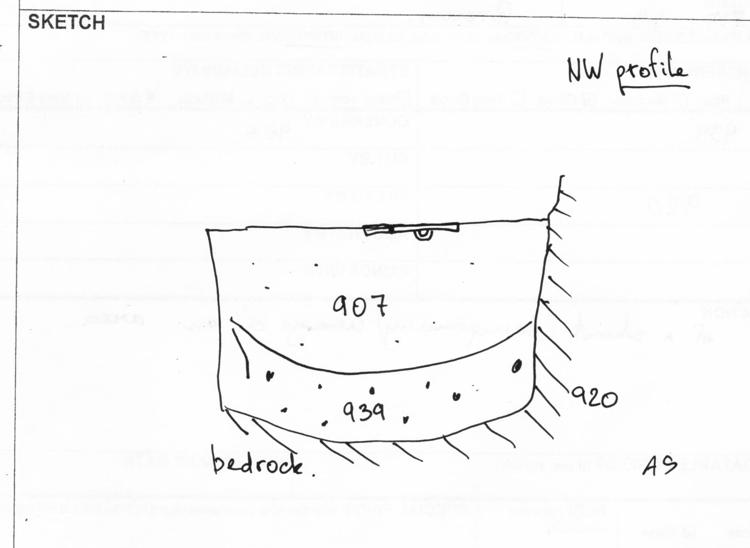 SKETCH
NW profile
907
939
920
bedrock.
AS